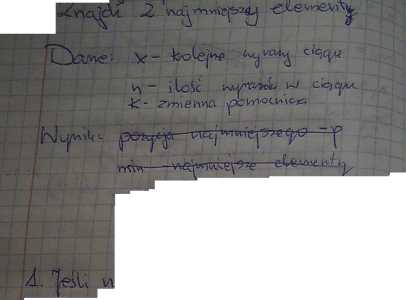 Znajdź 2 najmniejszy elementy
Dane: x - kolejne wyrazy ciągu
n - ilość wyrazów w ciągu
k - zmienna pomocnicza
Wynik: pozycja najmniejszego - p
min najmniejsze elementy
1. Jeśli n